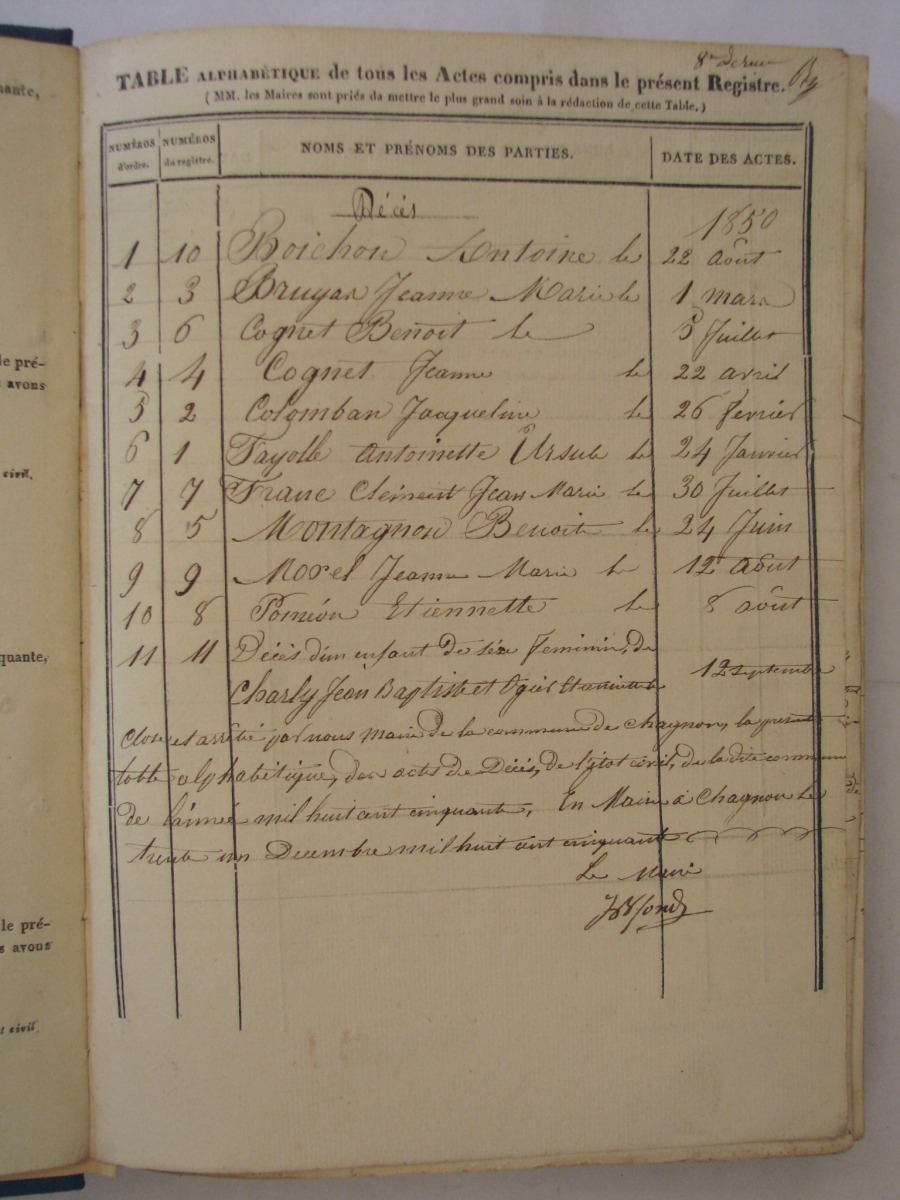 8e dernier
TABLE ALPHABÉTIQUE de tous les Actes compris dans le présent Registre.
( MM. les Maires sont priés da mettre le plus grand soin à la rédaction de cette Table. )
NUMÉROS d'ordre. NUMÉROS du registre. NOMS ET PRÉNOMS DES PARTIES. DATE DES ACTES.
Décés
1850
1 10 Boichon Antoine le 22 août
2 3 Bruyas Jeanne Marie le 1 mars
3 6 Cognet Benoit le 5 Juillet
4 4 Cognet Jeanne le 22 avril
5 2 Colomban Jacqueline le 26 fevrier
6 1 Fayolle Antoinette Ursule le 24 Janvier
7 7 Franc Clément Jean Marie le 30 Juillet
8 5 Montagnon Benoite le 24 Juin
9 9 Morel Jeanne Marie le 12 août
10 8 Poméon Etiennette le 8 août
11 11 Décés d'un enfant de séxe feminin, de
Charly Jean Baptiste et Ogier Etiennette le 12 septembre
Clos et arrêté par nous maire de la commune de Chagnon, la presente
table alphabétique, des actes de Décés, de l'état civil, de la dite commune
de l'année mil huit cent cinquante, En Mairie à Chagnon le
trente un Decembre mil huit cent cinquante
Le Maire
nante,
le pré-
avons
civil.
quante,
le pré-
s avons
t civil.